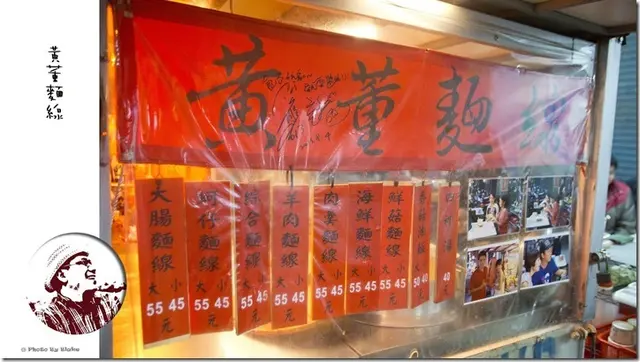 黃董麵線
黃董麵線
大腸麵線
大 小
55 45
元
蚵仔麵線
大 小
55 45
元
綜合麵線
大 小
55 45
元
羊肉麵線
大 小
55 45
元
肉羹麵線
大 小
55 45
元
海鮮麵線
大 小
55 45
元
鮮菇麵線
大 小
55 45
元
50 40
四神湯
40
元
© Photo By